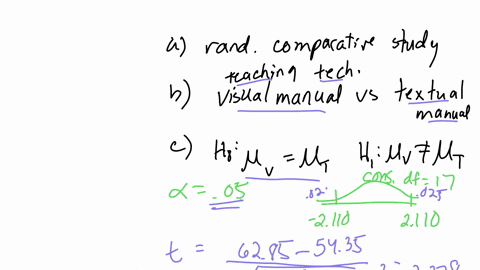 a) rand. comparative study
teaching tech.
b) visual manual vs textual
manual
c) H₀: μ_V = μ_T H₁: μ_V ≠ μ_T
cons. df = 17
α = .05 .025
-2.110 2.110
t = 62.85 - 54.35